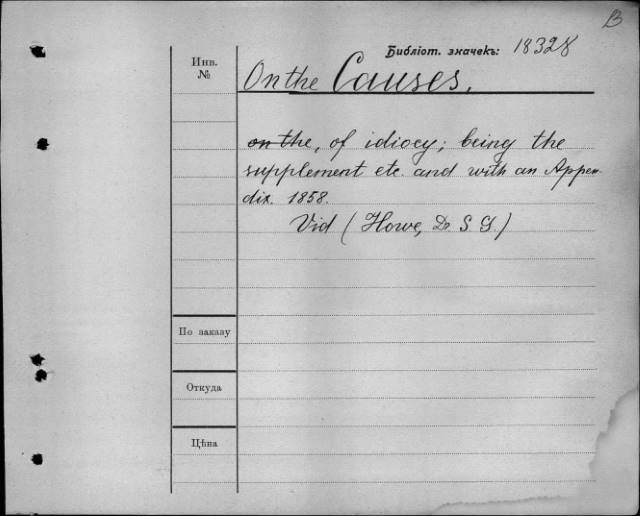 B
Библіот. значекъ: 18328
Инв.
№
On the Causes.
on the, of idiocy; being the
supplement etc. and with an Appen-
dix. 1858.
Vid (Howe, Dr. S. G.)
По заказу
Откуда
Цѣна